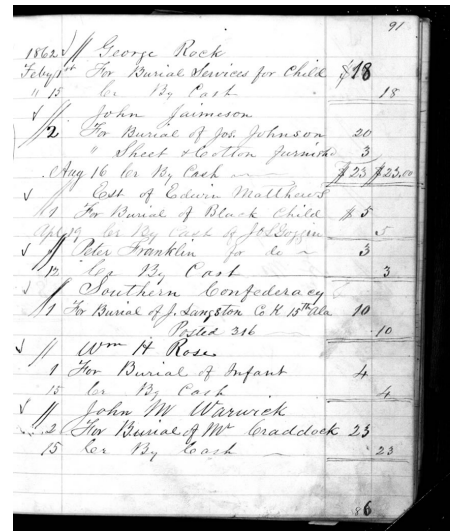 91
1862 George Rock
Feby 1st For Burial Services for Child $18
" 15 Cr By Cash " 18
John Jaimeson
2 For Burial of Jos. Johnson 20
" Sheet & Cotton furnished 3
Aug 16 Cr By Cash $23 $23.00
Est of Edwin Matthews
1 For Burial of Black Child $5
Apl 19 Cr By Cash 5
Peter Franklin for do 3
12 Cr By Cash 3
Southern Confederacy
1 For Burial of J. Langston Co K 15th Ala 10
Posted 316 10
Wm H Rose
1 For Burial of Infant 4
15 Cr By Cash 4
John M Warwick
2 For Burial of Mr Craddock 23
15 Cr By Cash 23
86